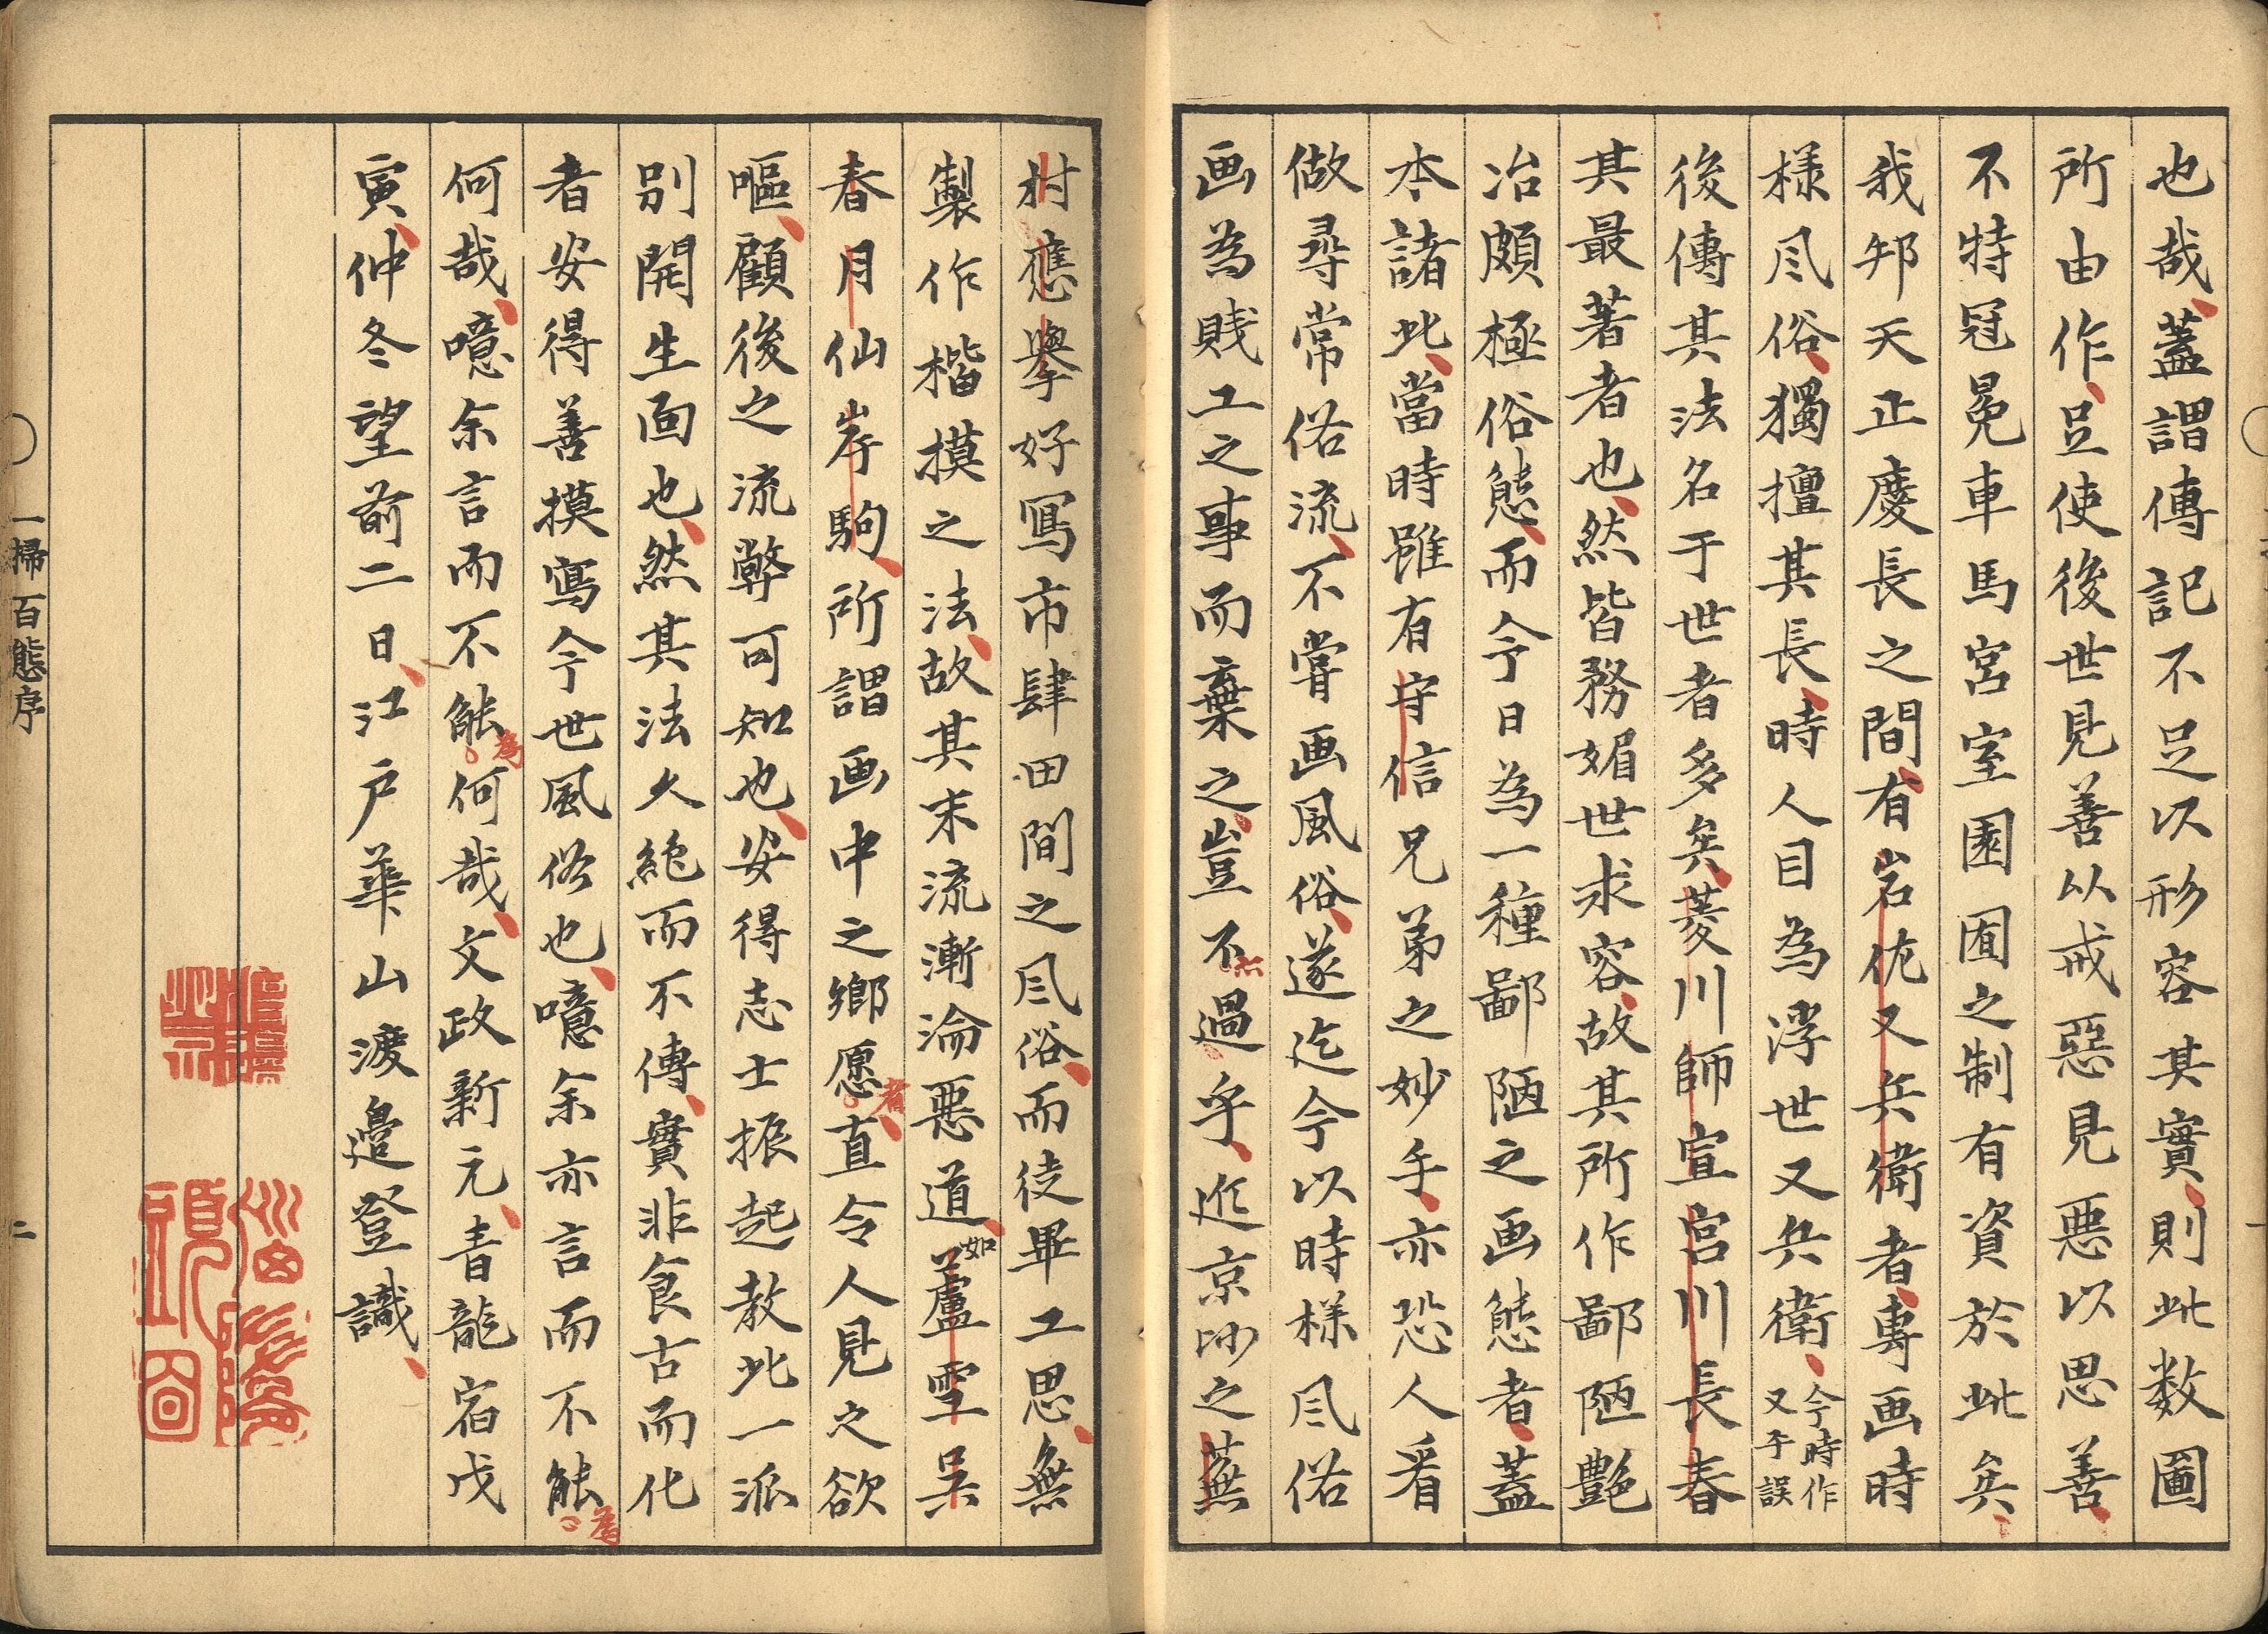 也哉蓋謂傳記不足以形容其實則此数圖
所由作足使後世見善以戒惡見惡以思善
不特冠冕車馬宮室園囿之制有資於此矣
我邦天正慶長之間有岩佐又兵衛者專画時
様凮俗獨擅其長時人目為浮世又兵衛今時作又乎誤
後傳其法名于世者多矣菱川師宣宮川長春
其最著者也然皆務媚世求容故其所作鄙陋艷
冶頗極俗態而今日為一種鄙陋之画態者蓋
本諸此當時雖有守信兄弟之妙手亦恐人看
做尋常俗流不嘗画風俗遂迄今以時様凮俗
画為賎工之事而棄之豈不過乎近京師之蕪
村應擧好寫市肆田間之凮俗而徒畢工思無
製作楷摸之法故其末流漸淪惡道如蘆雪呉
春月仙岸駒所謂画中之鄉愿者直令人見之欲
嘔顧後之流弊可知也安得志士振起教此一派
別開生面也然其法久絶而不傳實非食古而化
者安得善摸寫今世風俗也噫余亦言而不能為
何哉噫余言而不能為何哉文政新元青龍宿戊
寅仲冬望前二日江戸華山渡邉登識
一掃百態序
二